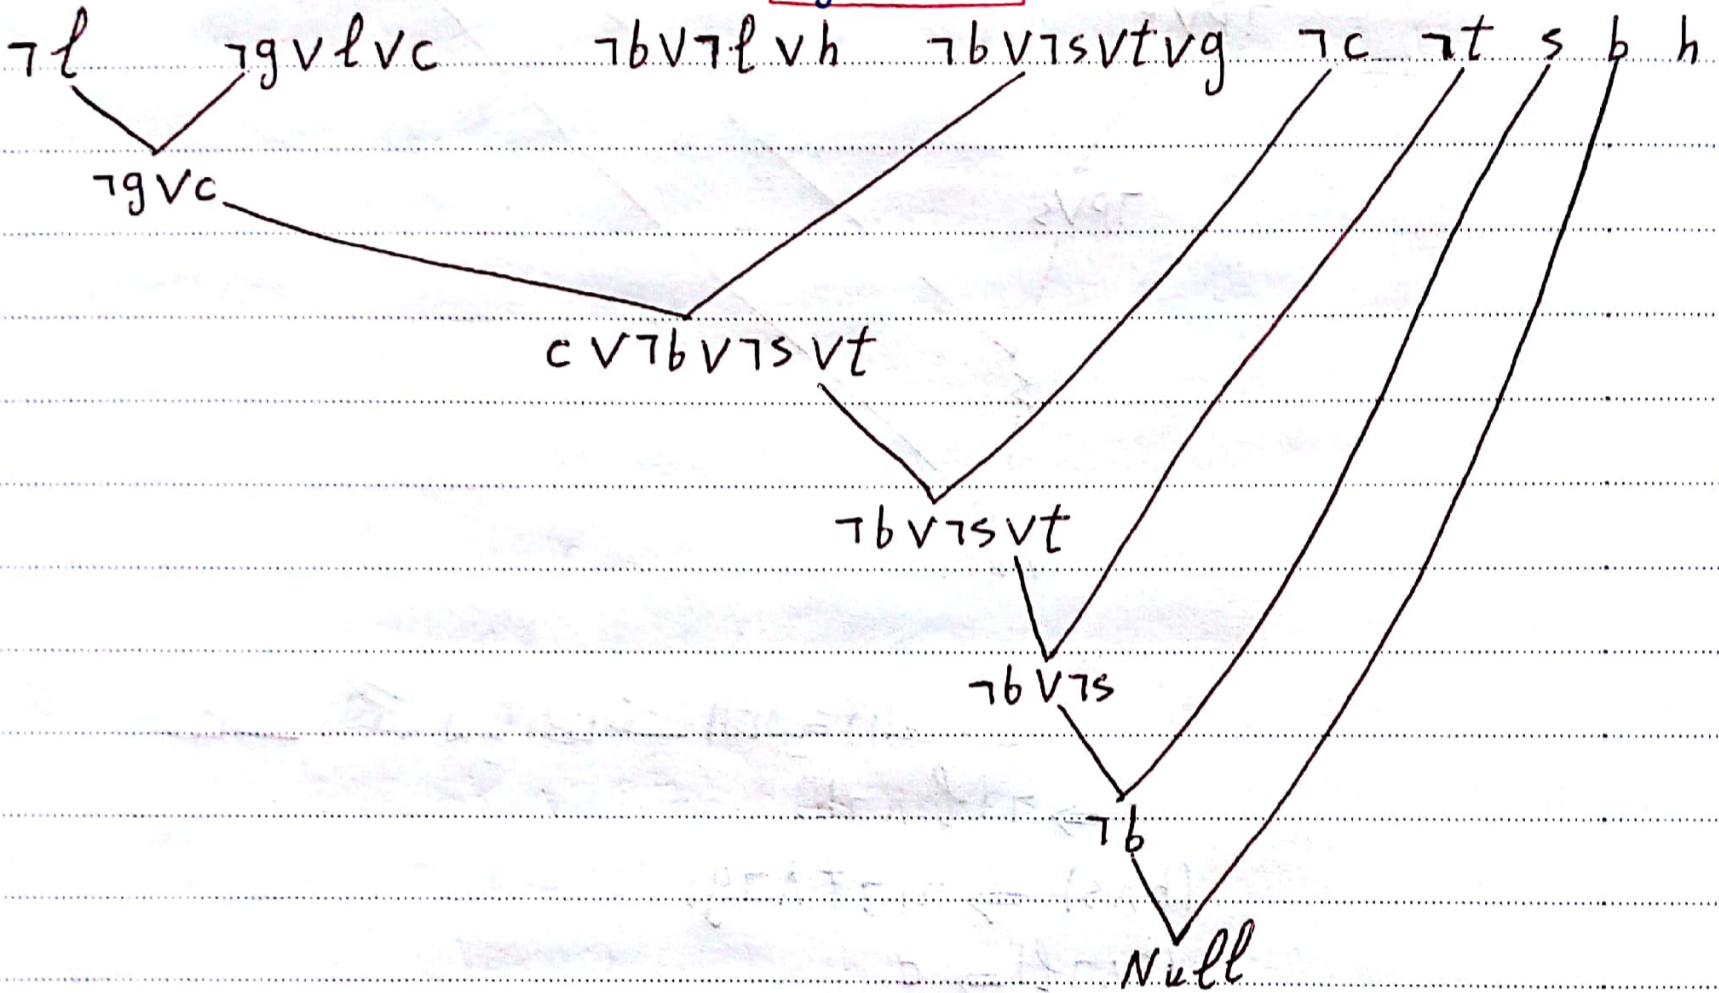 ¬l ¬g∨l∨c ¬b∨¬l∨h ¬b∨¬s∨t∨g ¬c ¬t s b h
¬g∨c
c∨¬b∨¬s∨t
¬b∨¬s∨t
¬b∨¬s
¬b
Null